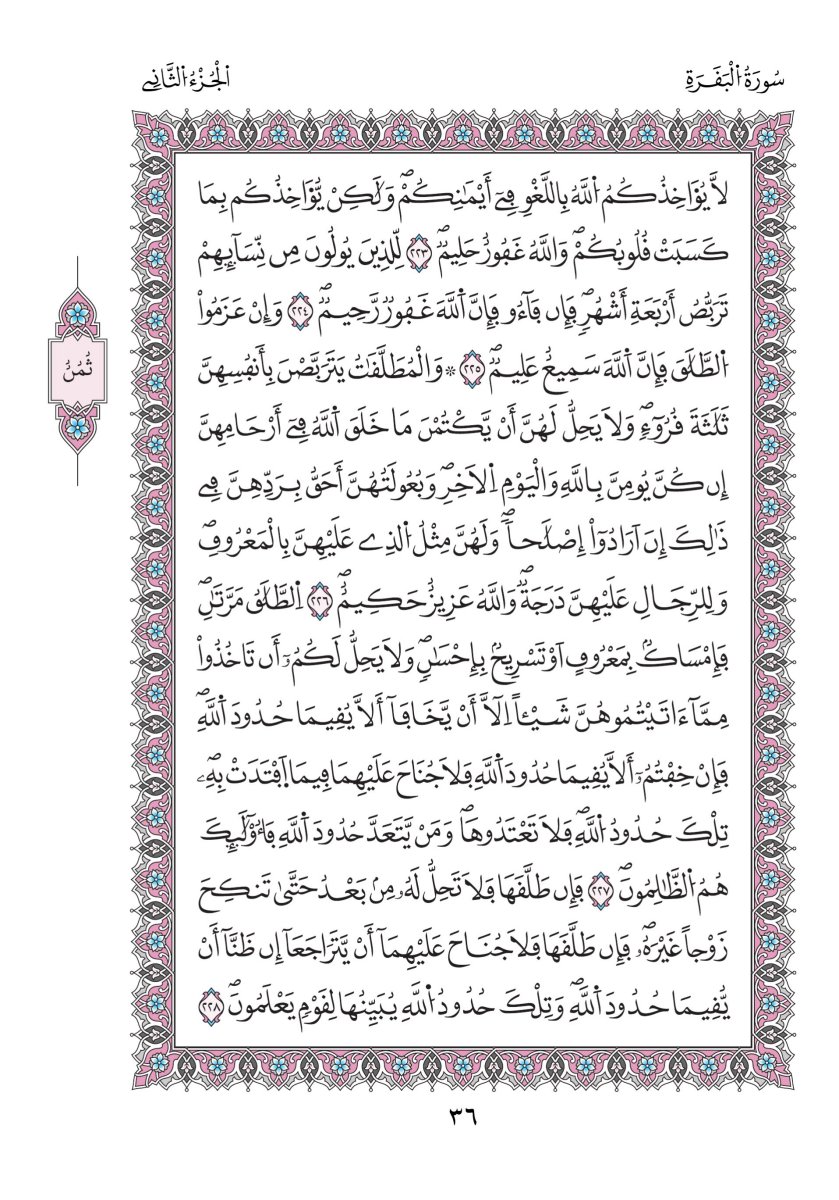 سُورَةُ اُ۬لْبَقَرَةِ
اَ۬لْجُزْءُ اُ۬لثَّانِے
لَّا يُؤَاخِذُكُمُ اُ۬للَّهُ بِاللَّغْوِ فِےٓ أَيْمَٰنِكُمْۖ وَلَٰكِنْ يُّؤَاخِذُكُم بِمَا
كَسَبَتْ قُلُوبُكُمْۖ وَاللَّهُ غَفُورٌ حَلِيمٞۖ ٢٢٣ لِّلذِينَ يُولُونَ مِن نِّسَآئِهِمْ
تَرَبُّصُ أَرْبَعَةِ أَشْهُرٖۖ فَإِن فَآءُو فَإِنَّ اَ۬للَّهَ غَفُورٞ رَّحِيمٞۖ ٢٢٤ وَإِنْ عَزَمُواْ
اُ۬لطَّلَٰقَ فَإِنَّ اَ۬للَّهَ سَمِيعٌ عَلِيمٞۖ ٢٢٥ ۞ وَالْمُطَلَّقَٰتُ يَتَرَبَّصْنَ بِأَنفُسِهِنَّ
ثَلَٰثَةَ قُرُوٓءٖۖ وَلَا يَحِلُّ لَهُنَّ أَنْ يَّكْتُمْنَ مَا خَلَقَ اَ۬للَّهُ فِےٓ أَرْحَامِهِنَّ
إِن كُنَّ يُومِنَّ بِاللَّهِ وَالْيَوْمِ اِ۬لَاخِرِۖ وَبُعُولَتُهُنَّ أَحَقُّ بِرَدِّهِنَّ فِے
ذَٰلِكَ إِنَ اَرَادُوٓاْ إِصْلَٰحاٗۖ وَلَهُنَّ مِثْلُ اُ۬لذِے عَلَيْهِنَّ بِالْمَعْرُوفِۖ
وَلِلرِّجَالِ عَلَيْهِنَّ دَرَجَةٞۖ وَاللَّهُ عَزِيزٌ حَكِيمٌۖ ٢٢٦ اِ۬لطَّلَٰقُ مَرَّتَٰنِۖ
فَإِمْسَاكُۢ بِمَعْرُوفٍ اَوْ تَسْرِيحُۢ بِإِحْسَٰنٖۖ وَلَا يَحِلُّ لَكُمُۥٓ أَن تَاخُذُواْ
مِمَّآ ءَاتَيْتُمُوهُنَّ شَيْـٔاً اِلَّآ أَنْ يَّخَافَآ أَلَّا يُقِيمَا حُدُودَ اَ۬للَّهِۖ
فَإِنْ خِفْتُمُۥٓ أَلَّا يُقِيمَا حُدُودَ اَ۬للَّهِ فَلَا جُنَاحَ عَلَيْهِمَا فِيمَا اَ۪فْتَدَتْ بِهِۦۖ
تِلْكَ حُدُودُ اُ۬للَّهِۖ فَلَا تَعْتَدُوهَاۖ وَمَنْ يَّتَعَدَّ حُدُودَ اَ۬للَّهِ فَأُوْلَٰٓئِكَ
هُمُ اُ۬لظَّٰلِمُونَۖ ٢٢٧ فَإِن طَلَّقَهَا فَلَا تَحِلُّ لَهُۥ مِنۢ بَعْدُ حَتَّىٰ تَنكِحَ
زَوْجاً غَيْرَهُۥۖ فَإِن طَلَّقَهَا فَلَا جُنَاحَ عَلَيْهِمَآ أَنْ يَّتَرَاجَعَآ إِن ظَنَّآ أَنْ
يُّقِيمَا حُدُودَ اَ۬للَّهِۖ وَتِلْكَ حُدُودُ اُ۬للَّهِ يُبَيِّنُهَا لِقَوْمٖ يَعْلَمُونَۖ ٢٢٨
ثُمُنُ
٣٦